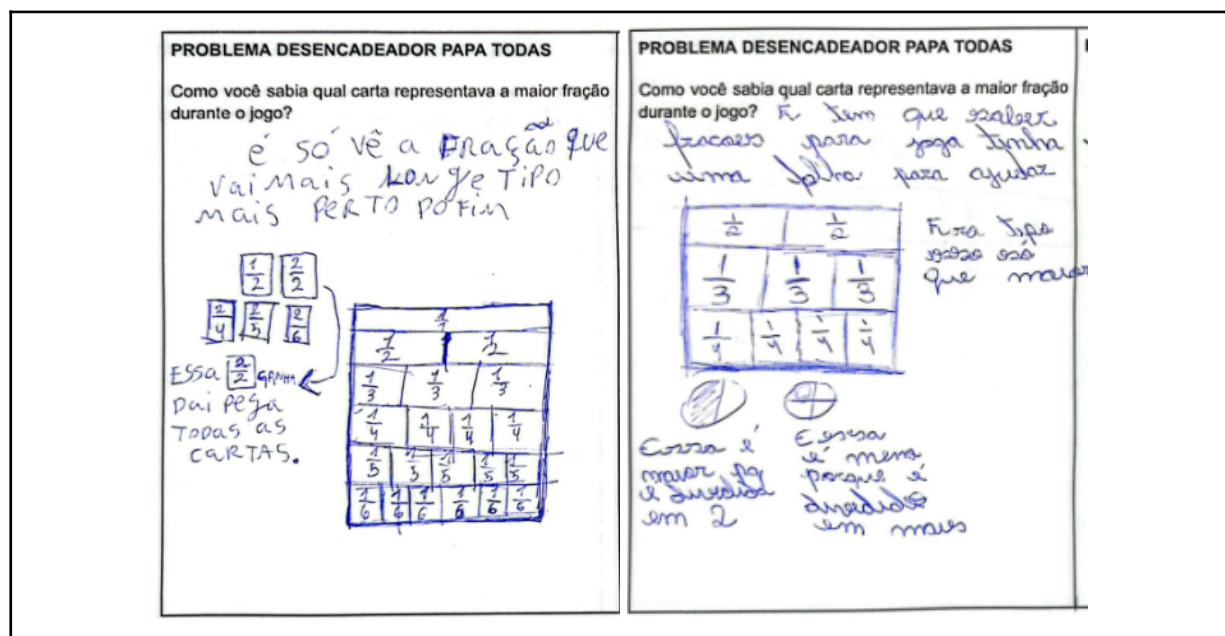 PROBLEMA DESENCADEADOR PAPA TODAS
Como você sabia qual carta representava a maior fração
durante o jogo?
é só vê a FRAÇão que
vai mais longe TiPO
mais PERTO PO Fim
1/2 2/2
2/4 2/5 2/6
ESSa 2/2 GANHA
Dai Pega
TODas as
CaRTAS.
1/1
1/2 1/2
1/3 1/3 1/3
1/4 1/4 1/4 1/4
1/5 1/5 1/5 1/5 1/5
1/6 1/6 1/6 1/6 1/6 1/6
PROBLEMA DESENCADEADOR PAPA TODAS
Como você sabia qual carta representava a maior fração
durante o jogo? É tem que saber
fracoes para joga tinha
uma folha para ajudar
1/2 1/2
1/3 1/3 1/3
1/4 1/4 1/4 1/4
Era tipo
isso só
que maior
Essa é
maior pq
é dividida
em 2
E essa
é meno
porque é
dividido
em mais